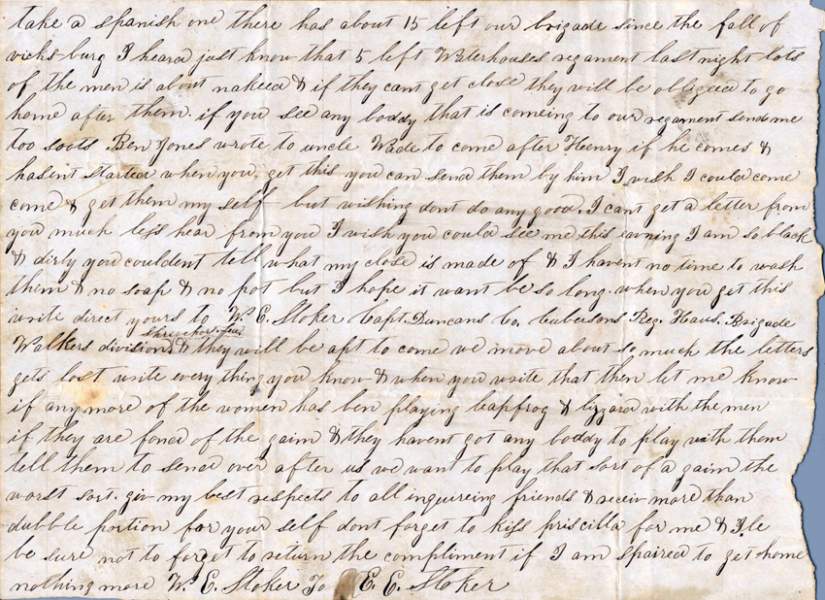 take a spanish one there has about 15 left our brigade since the fall of
vicksburg I heard just know that 5 left Waterhouses regament last night lots
of the men is about nakeed & if they cant get close they will be obligeed to go
home after them. if you see any boddy that is comeing to our regament send me
too soots Ben Jones wrote to uncle Wade to come after Henry if he comes &
hasint started when you get this you can send them by him I wish I could come
come & get them my self but wishing dont do any good. I cant get a letter from
you much less hear from you I wish you could see me this eavning I am so black
& dirty you couldent tell what my close is made of & I havent no time to wash
them & no soap & no pot but I hope it want be so long. when you get this
write direct yours to W. E. Stoker Capt. Duncans Co. Cubersons Reg. Haws. Brigade
Walkers division & they will be apt to come we move about so much the letters
gets lost write every thing you know & when you write that then let me know
if any more of the women has ben playing leapfrog & lizzard with the men
if they are fond of the gaim & they havent got any boddy to play with them
tell them to send over after us we want to play that sort of a gaim the
worst sort. giv my best respects to all inquireing friends & receiv more than
dubble portion for your self dont forget to kiss priscilla for me & I,le
be sure not to forget to return the compliment if I am spaired to get home
nothing more W. E. Stoker To E. E. Stoker